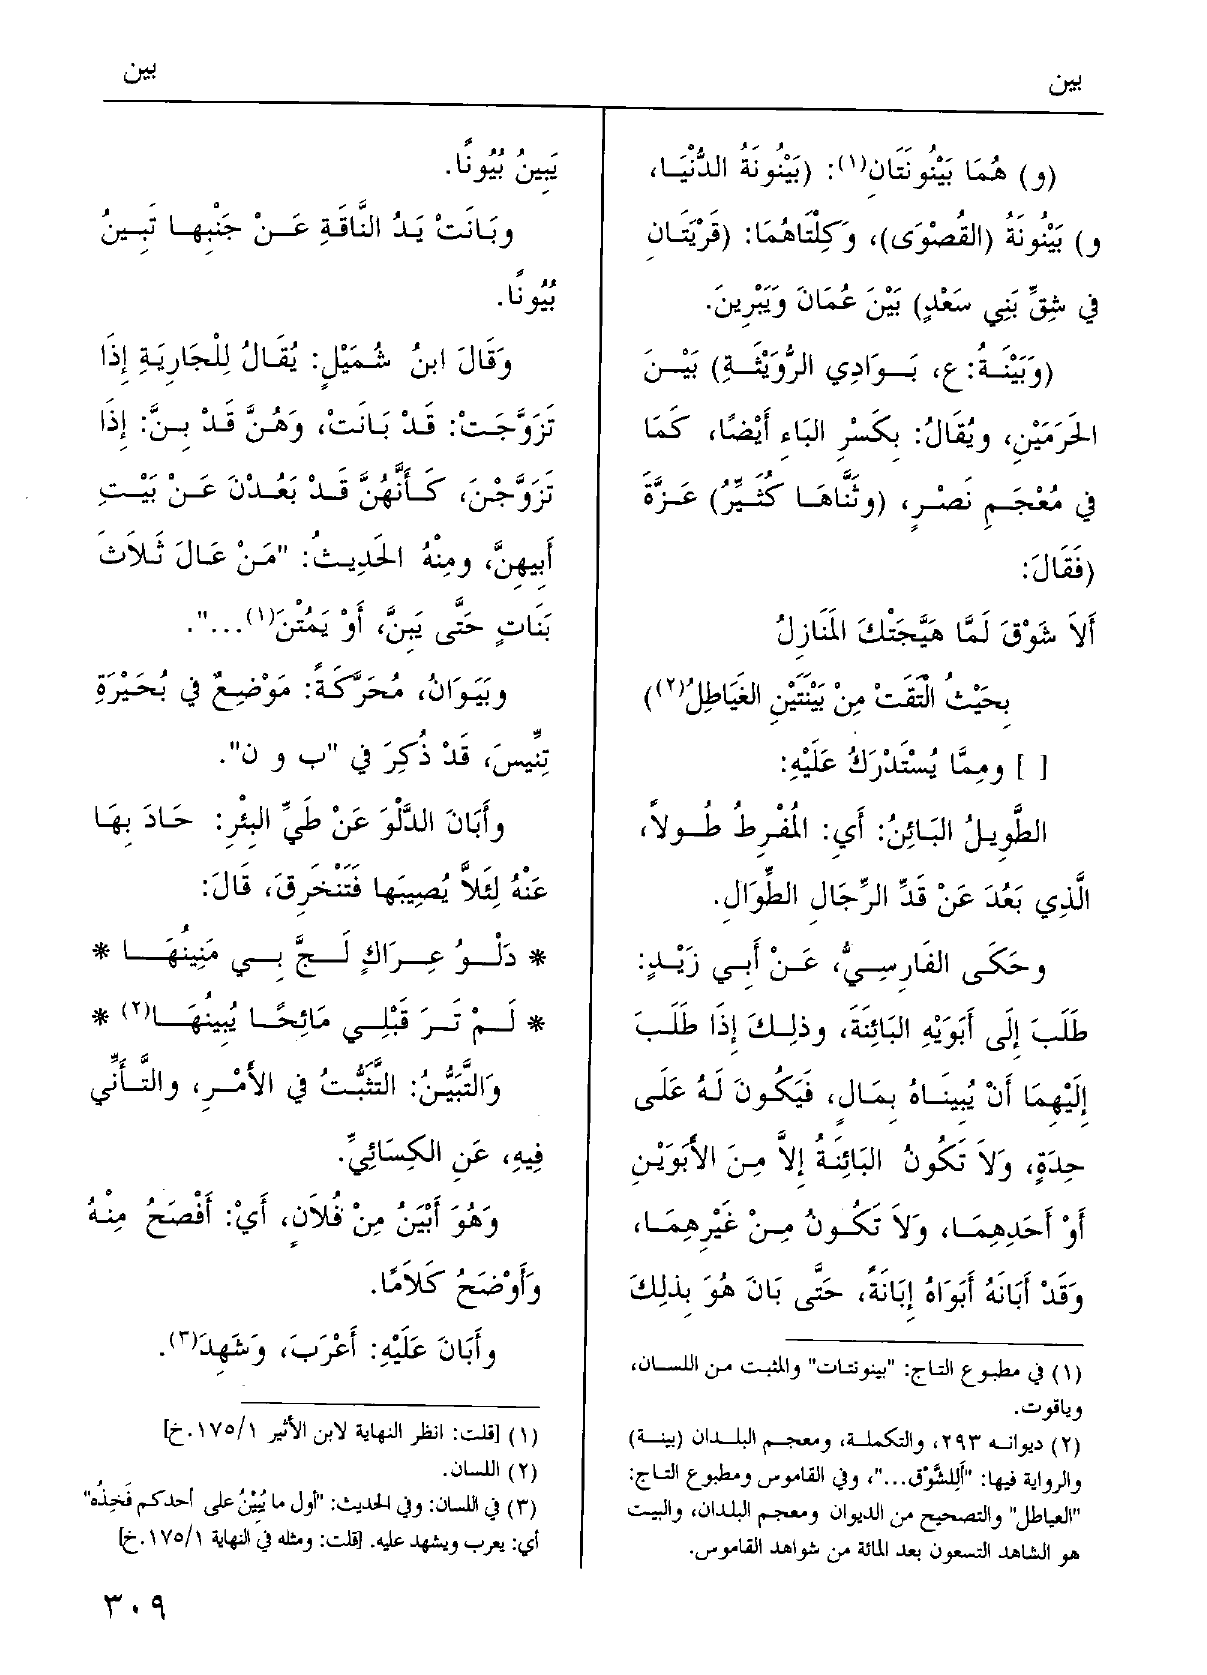 بين
بين
(و) هُمَا بَيْنُونَتَان(١): (بَيْنُونَةُ الدُّنْيَا،
و) بَيْنُونَةُ (القُصْوَى)، وَكِلْتَاهُمَا: (قَرْيَتَانِ
في شِقِّ بَنِي سَعْدٍ) بَيْنَ عُمَانَ وَيَبْرِينَ.
(وَبَيْنَةُ: ع، بَوَادِي الرُّوَيْثَةِ) بَيْنَ
الحَرَمَيْنِ، ويُقَالُ: بِكَسْرِ البَاءِ أَيْضًا، كَمَا
في مُعْجَمِ نَصْرٍ، (وثَنَّاهَا كُثَيِّرُ) عَزَّةَ
(فَقَالَ:
أَلاَ شَوْقَ لَمَّا هَيَّجَتْكَ المَنَازِلُ
بِحَيْثُ الْتَقَتْ مِنْ بَيْنَتَيْنِ الغَيَاطِلُ(٢))
[ ] ومِمَّا يُسْتَدْرَكُ عَلَيْهِ:
الطَّوِيلُ البَائِنُ: أَي: المُفْرِطُ طُولاً،
الَّذِي بَعُدَ عَنْ قَدِّ الرِّجَالِ الطِّوَالِ.
وحَكَى الفَارِسِيُّ، عَنْ أَبِي زَيْدٍ:
طَلَبَ إِلَى أَبَوَيْهِ البَائِنَةَ، وذلِكَ إِذَا طَلَبَ
إِلَيْهِمَا أَنْ يُبِينَاهُ بِمَالٍ، فَيَكُونَ لَهُ عَلَى
حِدَةٍ، وَلاَ تَكُونُ البَائِنَةُ إِلاَّ مِنَ الأَبَوَيْنِ
أَوْ أَحَدِهِمَا، وَلاَ تَكُونُ مِنْ غَيْرِهِمَا،
وَقَدْ أَبَانَهُ أَبَوَاهُ إِبَانَةً، حَتَّى بَانَ هُوَ بِذلِكَ
(١) في مطبوع التاج: "بينونتات" والمثبت من اللسان،
وياقوت.
(٢) ديوانه ٢٩٣، والتكملة، ومعجم البلدان (بينة)
والرواية فيها: "أَلِلشَّوْق..."، وفي القاموس ومطبوع التاج:
"العياطل" والتصحيح من الديوان ومعجم البلدان، والبيت
هو الشاهد التسعون بعد المائة من شواهد القاموس.
يَبِينُ بُيُونًا.
وبَانَتْ يَدُ النَّاقَةِ عَنْ جَنْبِها تَبِينُ
بُيُونًا.
وَقَالَ ابنُ شُمَيْلٍ: يُقَالُ لِلْجَارِيَةِ إِذَا
تَزَوَّجَتْ: قَدْ بَانَت، وَهُنَّ قَدْ بِنَّ: إِذَا
تَزَوَّجْنَ، كَأَنَّهُنَّ قَدْ بَعُدْنَ عَنْ بَيْتِ
أَبِيهِنَّ، ومِنْهُ الحَدِيثُ: "مَنْ عَالَ ثَلاَثَ
بَنَاتٍ حَتَّى يَبِنَّ، أَوْ يَمُتْنَ(١)...".
وبَيَوَانُ، مُحَرَّكَةً: مَوْضِعٌ في بُحَيْرَةِ
تِنِّيسَ، قَدْ ذُكِرَ في "ب و ن".
وأَبَانَ الدَّلْوَ عَنْ طَيِّ البِئْرِ: حَادَ بِهَا
عَنْهُ لِئَلاَّ يُصِيبَها فَتَنْخَرِقَ، قَالَ:
* دَلْوُ عِرَاكٍ لَجَّ بِي مَنِينُهَا *
* لَمْ تَرَ قَبْلِي مَائِحًا يُبِينُهَا(٢) *
وَالتَّبَيُّنُ: التَّثَبُّتُ في الأَمْرِ، والتَّأَنِّي
فِيهِ، عَنِ الكِسَائِيِّ.
وَهُوَ أَبْيَنُ مِنْ فُلاَنٍ، أَيْ: أَفْصَحُ مِنْهُ
وَأَوْضَحُ كَلاَمًا.
وأَبَانَ عَلَيْهِ: أَعْرَبَ، وَشَهِدَ(٣).
(١) [قلت: انظر النهاية لابن الأثير ١/١٧٥.خ]
(٢) اللسان.
(٣) في اللسان: وفي الحديث: "أول ما يُبَيِّنُ على أحدكم فَخِذُه"
أي: يعرب ويشهد عليه. [قلت: ومثله في النهاية ١/١٧٥.خ]
٣٠٩